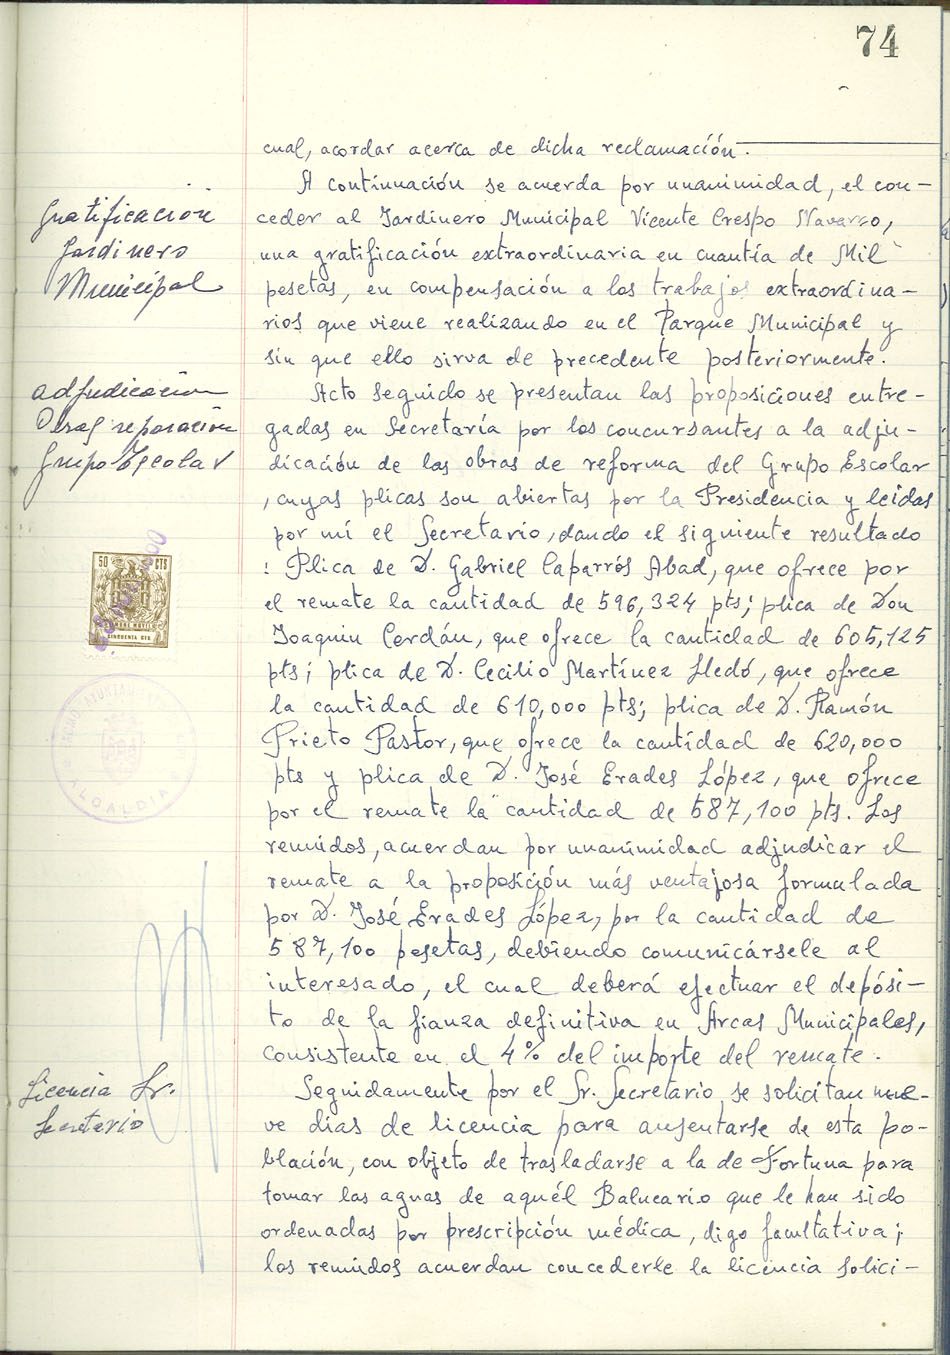 74
cual, acordar acerca de dicha reclamación.
A continuación se acuerda por unanimidad, el con-
ceder al Jardinero Municipal Vicente Crespo Navarro,
una gratificación extraordinaria en cuantía de Mil
pesetas, en compensación a los trabajos extraordina-
rios que viene realizando en el Parque Municipal y
sin que ello sirva de precedente posteriormente.
Gratificación
Jardinero
Municipal
Acto seguido se presentan las proposiciones entre-
gadas en Secretaría por los concursantes a la adju-
dicación de las obras de reforma del Grupo Escolar
, cuyas plicas son abiertas por la Presidencia y leidas
por mí el Secretario, dando el siguiente resultado
: Plica de D. Gabriel Caparrós Abad, que ofrece por
el remate la cantidad de 596,324 pts; plica de Don
Joaquin Cerdán, que ofrece la cantidad de 605,125
pts; plica de D. Cecilio Martínez Lledó, que ofrece
la cantidad de 610,000 pts; plica de D. Ramón
Prieto Pastor, que ofrece la cantidad de 620,000
pts y plica de D. José Erades López, que ofrece
por el remate la cantidad de 587,100 pts. Los
reunidos, acuerdan por unanimidad adjudicar el
remate a la proposición más ventajosa formulada
por D. José Erades López, por la cantidad de
587,100 pesetas, debiendo comunicársele al
interesado, el cual deberá efectuar el depósi-
to de la fianza definitiva en Arcas Municipales,
consistente en el 4% del importe del remate.
adjudicación
Obras reparación
Grupo Escolar
50 CTS
CINCUENTA CTS
AYUNTAMIENTO
ALCALDIA
Seguidamente por el Sr. Secretario se solicitan nue-
ve dias de licencia para ausentarse de esta po-
blación, con objeto de trasladarse a la de Fortuna para
tomar las aguas de aquél Balneario que le han sido
ordenadas por prescripción médica, digo facultativa;
los reunidos acuerdan concederle la licencia solici-
Licencia Sr.
Secretario